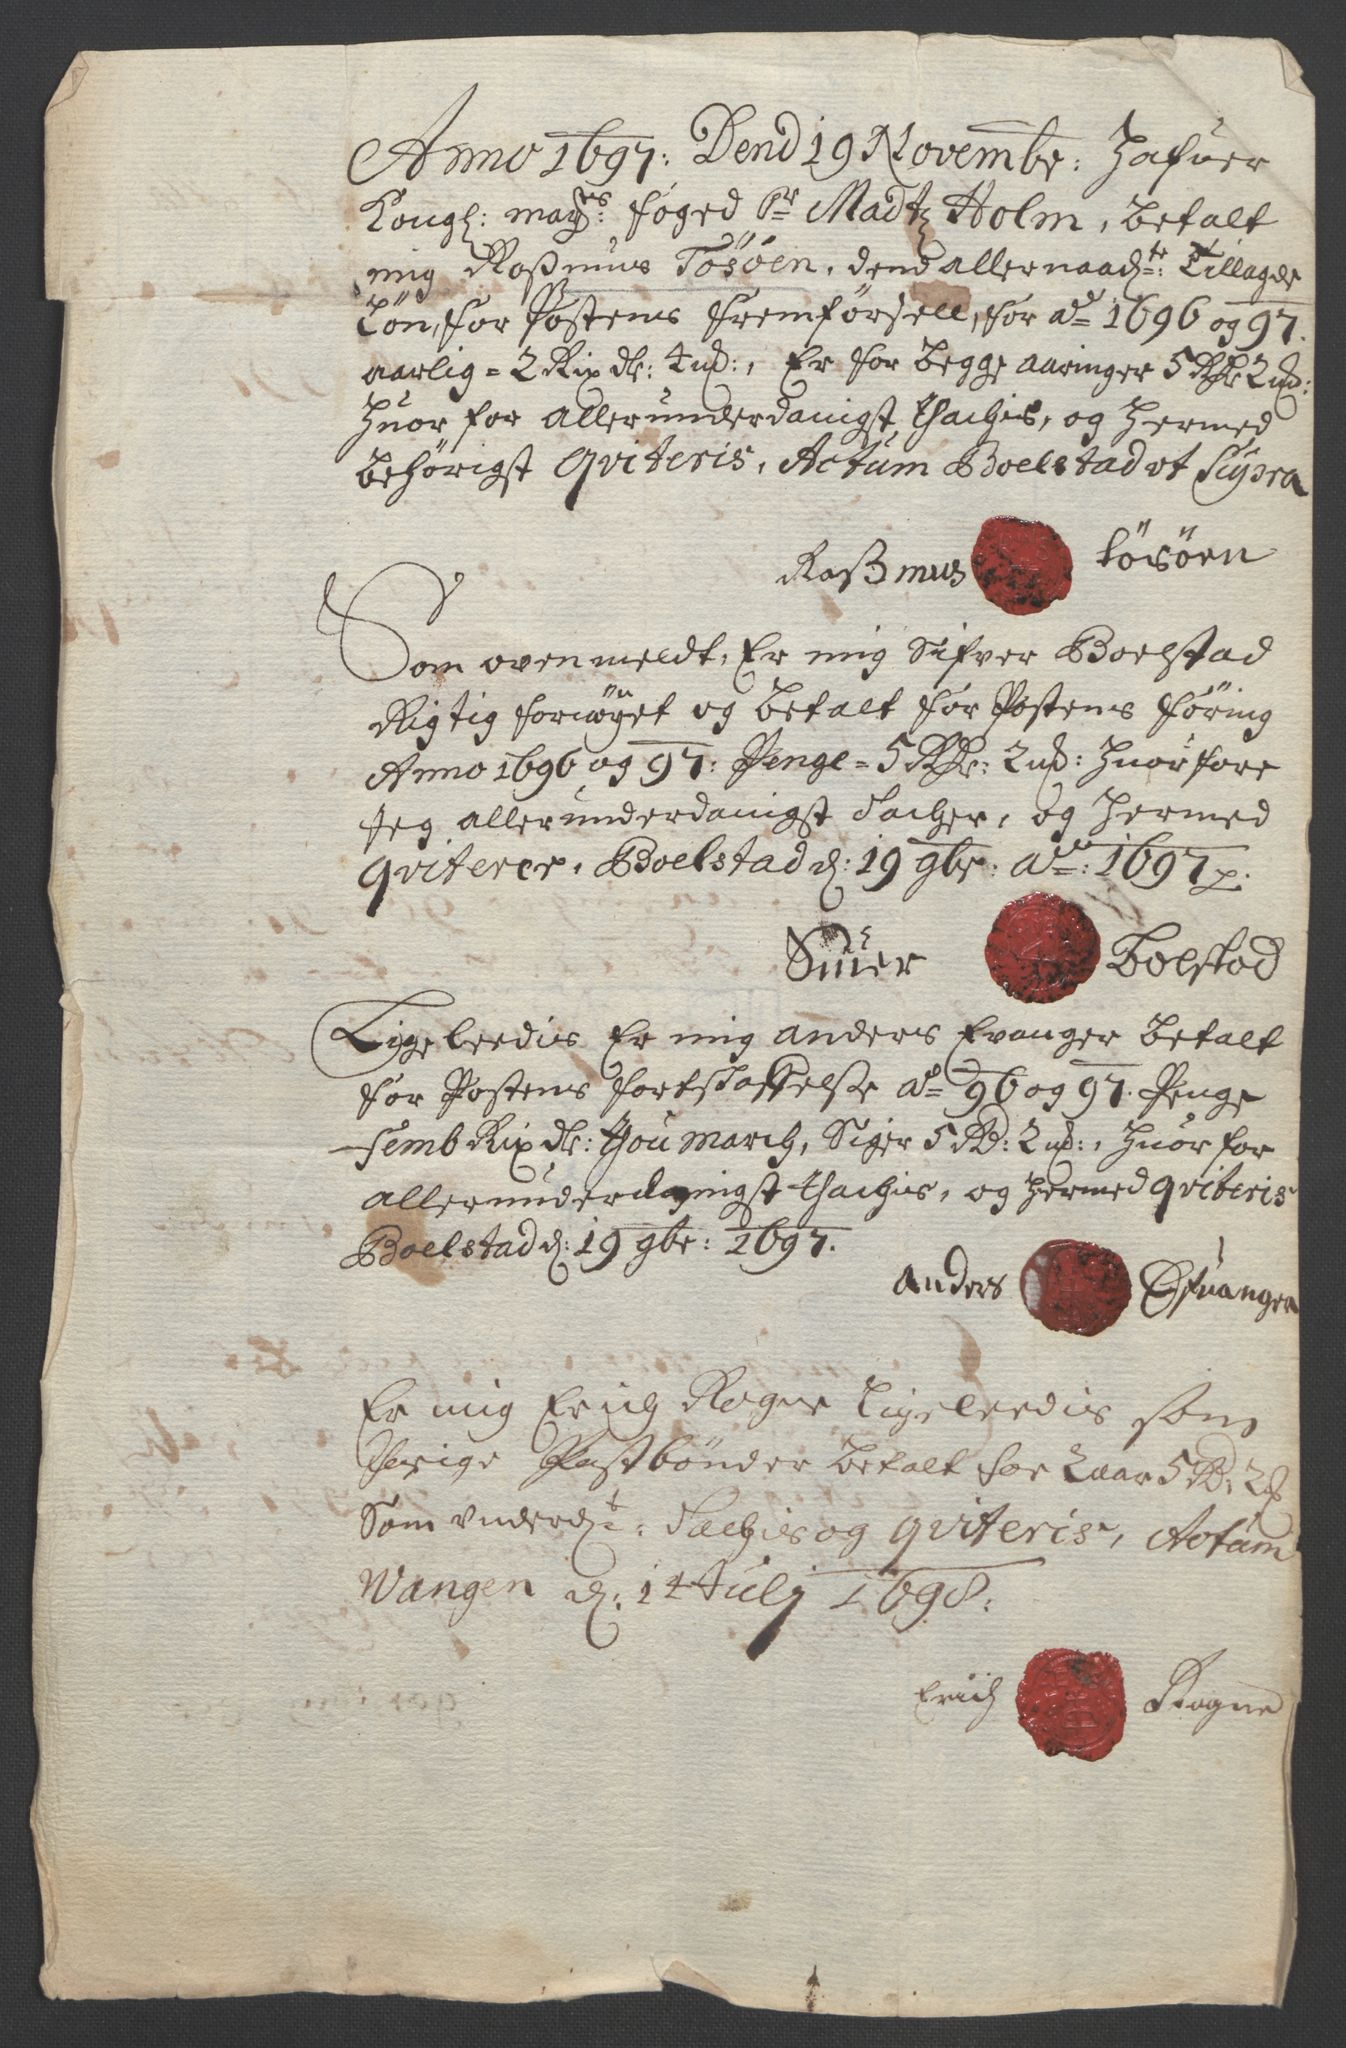 Anno 1697: Dend 19 Novembr: Hafuer
Kongl: mayts: foged Sr Madtz Holm, betalt
mig Raßmus Tösöen, dend allernaadte: Tillagde
Lön, for Postens fremförsell, for ao 1696 og 97.
aarlig = 2 Rix dr: 4 mk:, Er for begge aaringer 5 Rdr 2 mk:
Huor for allerunderdanigst thachis, og hermed
behörigst qviteris, Actum Boelstad ut supra
Raßmus Tösöen
Som ovenmeldt, Er mig Sifver Boelstad
Rigtig fornöyet og betalt for Postens föring
Anno 1696 og 97: Penge = 5 Rdr: 2 mk: Huorfore
Jeg allerunderdanigst tacher, og hermed
qviterer, Boelstad d: 19 9br: ao: 1697
Siuer Bolstad
Ligeleedis Er mig anders Evanger betalt
for Postens fortskaffelse ao 96 og 97. Penge
femb Rix dr: thou march, Siger 5 Rd: 2 mk:, Huor for
allerunderdanigst thachis, og hermed qviteris
Boelstad d: 19 9br: 1697.
anders Efuanger
Er mig Erich Rogne Ligeleedis som
Postbönder betalt for 2 aar 5 Rd: 2 mk
Som underdt: tachis og qviteris, Actum
Wangen d: 14 Julj 1698:
Erich Rogne